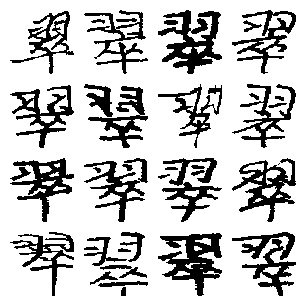 翠翠翠翠
翠翠翠翠
翠翠翠翠
翠翠翠翠